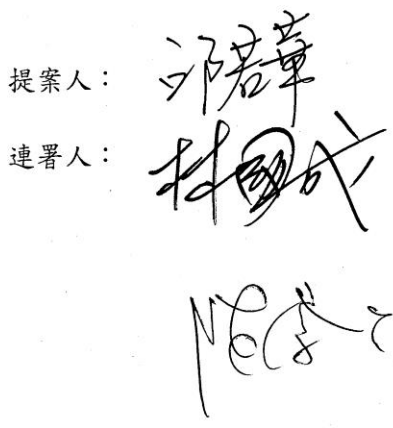 提案人： 邱若華
連署人： 林國成